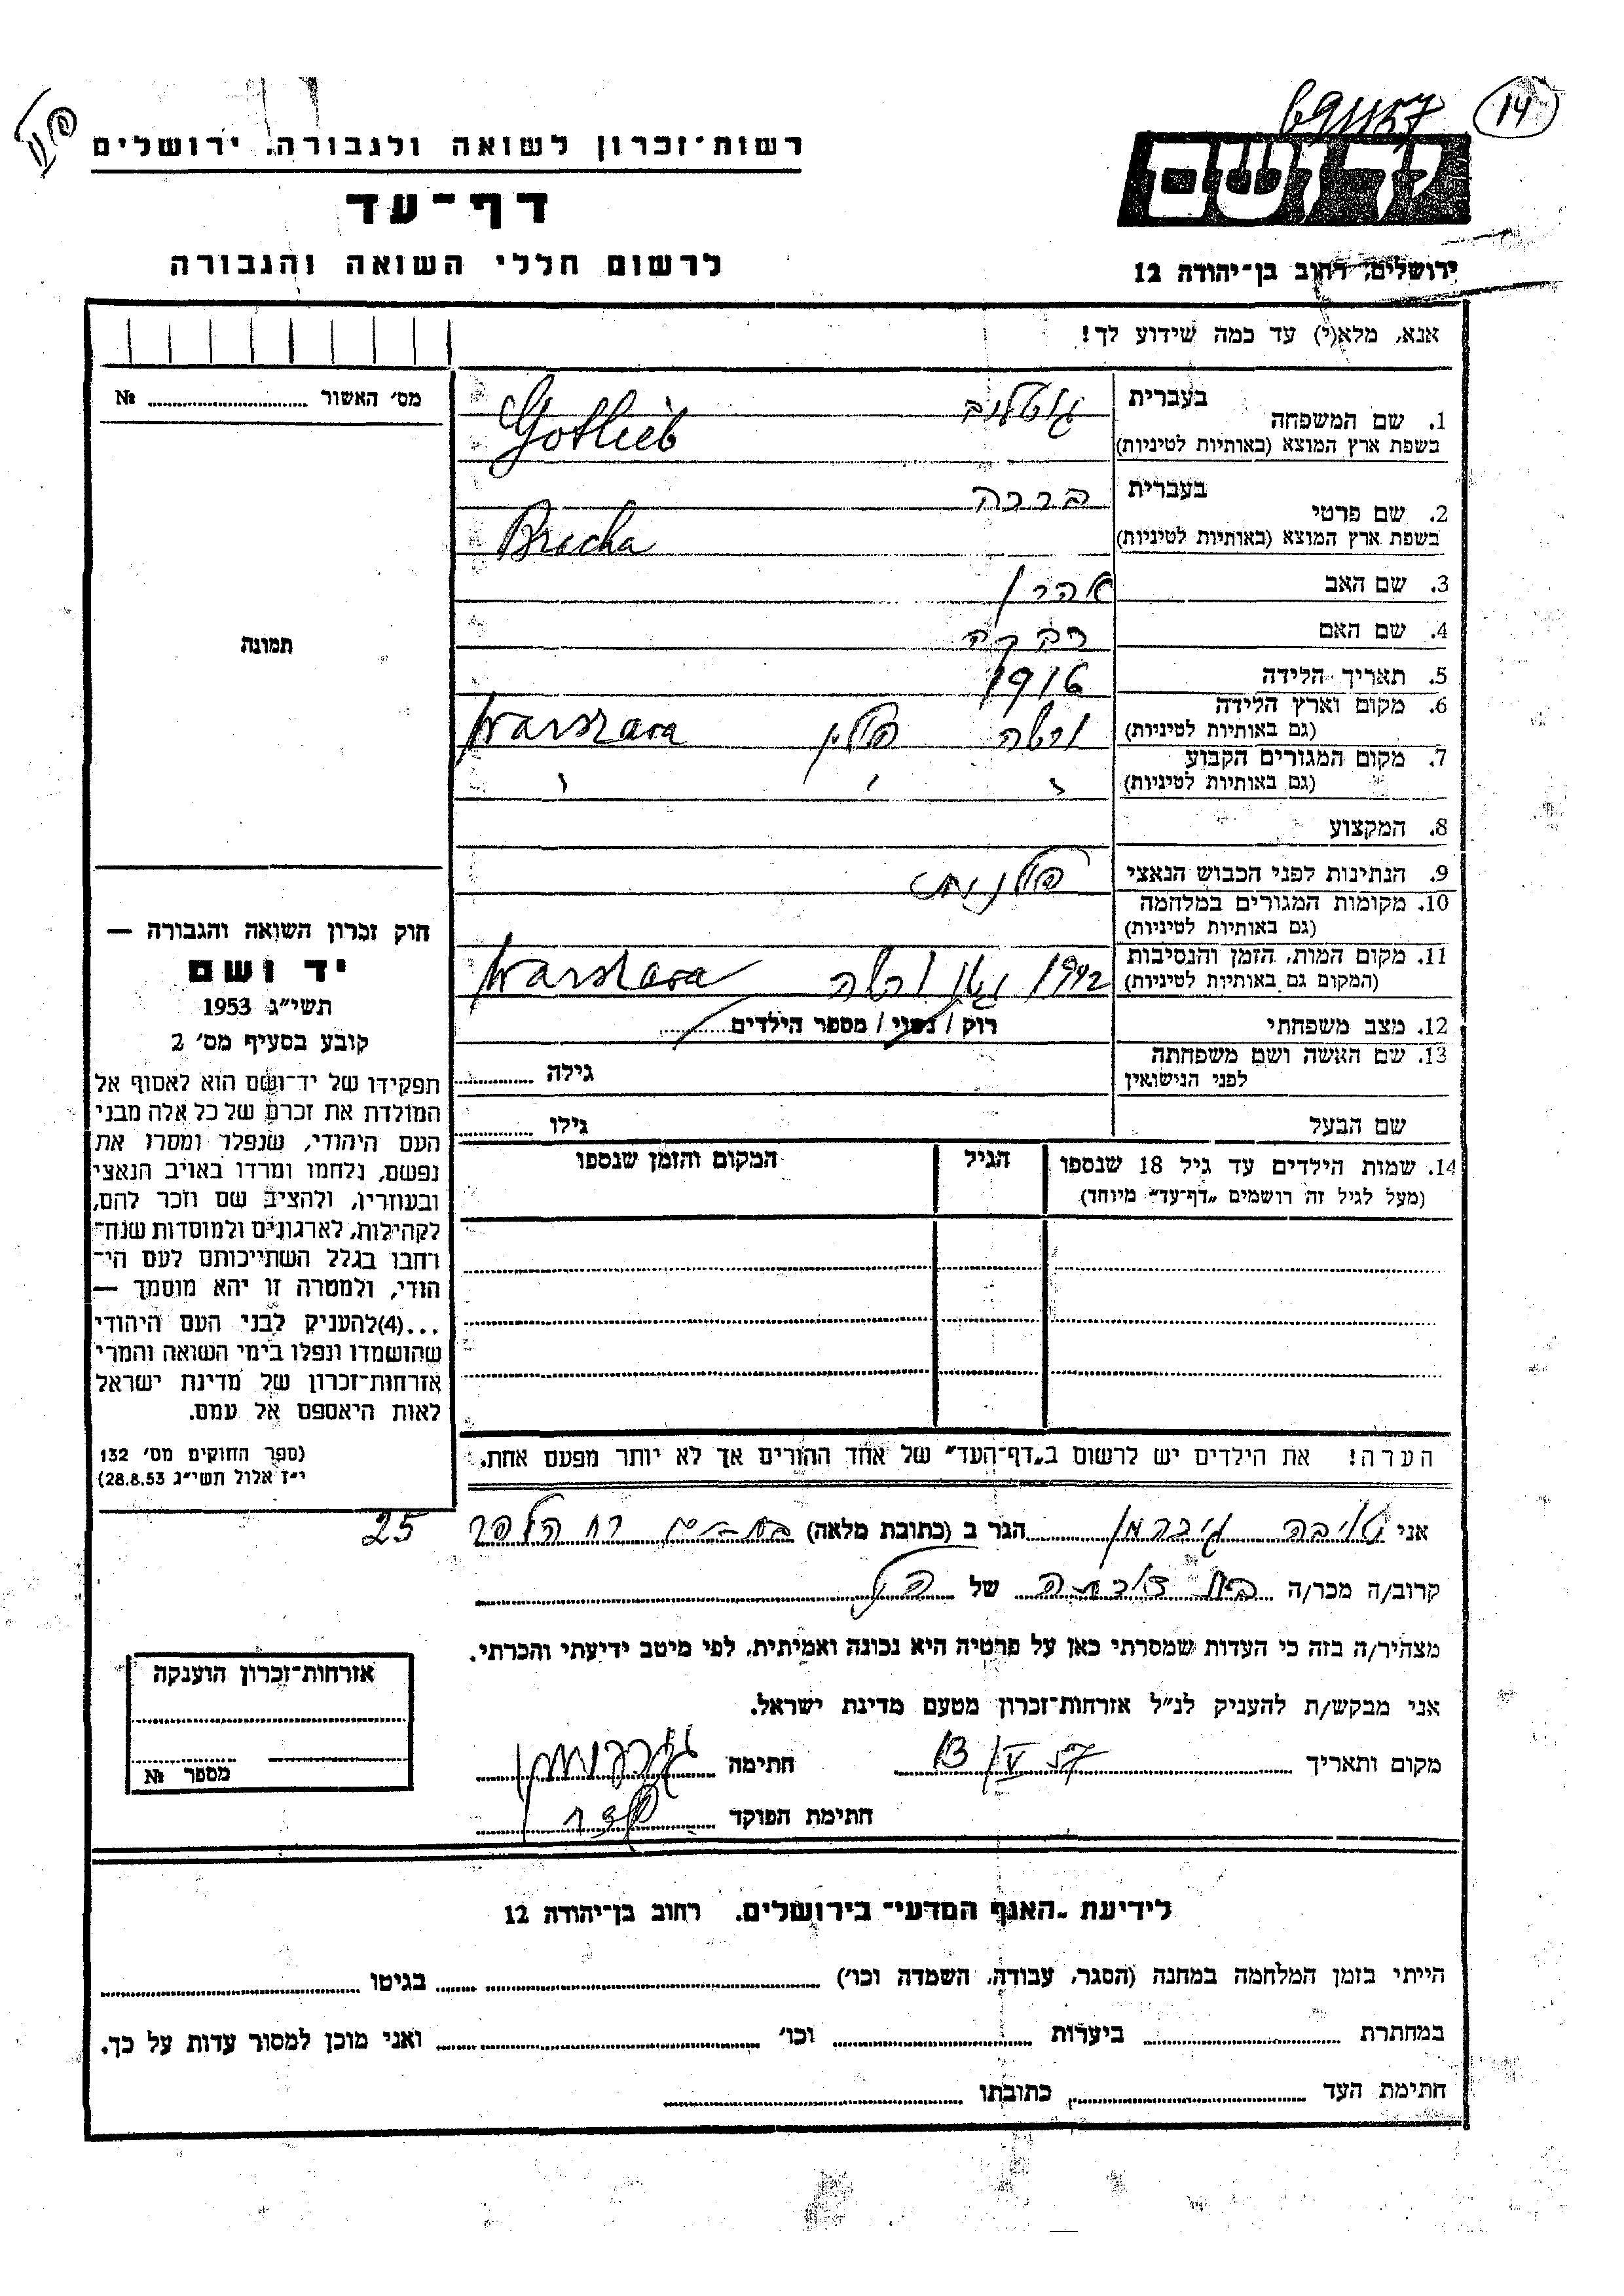 14
69/1157
רשות־זכרון לשואה ולגבורה, ירושלים
דף־עד
לרשום חללי השואה והגבורה
יד ושם
ירושלים, רחוב בן־יהודה 12
אנא, מלא(י) עד כמה שידוע לך!
מס׳ האשור № 
תמונה
1. שם המשפחה בעברית גוטליב
בשפת ארץ המוצא (באותיות לטיניות) Gotlieb
2. שם פרטי בעברית ברכה
בשפת ארץ המוצא (באותיות לטיניות) Bracha
3. שם האב אהרן
4. שם האם רבקה
5. תאריך הלידה 1916
6. מקום וארץ הלידה (גם באותיות לטיניות) ורשה פולין Warszawa
7. מקום המגורים הקבוע (גם באותיות לטיניות) " " "
8. המקצוע
9. הנתינות לפני הכבוש הנאצי פולנית
10. מקומות המגורים במלחמה (גם באותיות לטיניות)
11. מקום המות, הזמן והנסיבות (המקום גם באותיות לטיניות) 1942 גטו ורשה Warszawa
12. מצב משפחתי רוק / נשוי / מספר הילדים
13. שם האשה ושם משפחתה לפני הנישואין גילה
שם הבעל גילו
14. שמות הילדים עד גיל 18 שנספו הגיל המקום והזמן שנספו
(מעל לגיל זה רושמים „דף־עד" מיוחד)
חוק זכרון השואה והגבורה —
יד ושם
תשי״ג 1953
קובע בסעיף מס׳ 2
תפקידו של יד־ושם הוא לאסוף אל
המולדת את זכרם של כל אלה מבני
העם היהודי, שנפלו ומסרו את
נפשם, נלחמו ומרדו באויב הנאצי
ובעוזריו, ולהציב שם וזכר להם,
לקהילות, לארגונים ולמוסדות שנח־
רחבו בגלל השתייכותם לעם הי־
הודי, ולמטרה זו יהא מוסמך —
...(4)להעניק לבני העם היהודי
שהושמדו ונפלו בימי השואה והמרי
אזרחות־זכרון של מדינת ישראל
לאות היאספם אל עמם.
(ספר החוקים מס׳ 132
י״ז אלול תשי״ג 28.8.53)
הערה! את הילדים יש לרשום ב„דף־העד" של אחד ההורים אך לא יותר מפעם אחת.
אני טויבה גוברמן הגר ב (כתובת מלאה) רח 25
קרוב/ה מכר/ה בת דודתה של הנ״ל
מצהיר/ה בזה כי העדות שמסרתי כאן על פרטיה היא נכונה ואמיתית, לפי מיטב ידיעתי והכרתי.
אני מבקש/ת להעניק לנ״ל אזרחות־זכרון מטעם מדינת ישראל.
מקום ותאריך 13/V 57 חתימה גוברמן
חתימת הפוקד
אזרחות־זכרון הוענקה
מספר №
לידיעת „האגף המדעי" בירושלים, רחוב בן־יהודה 12
הייתי בזמן המלחמה במחנה (הסגר, עבודה, השמדה וכו׳) בגיטו
במחתרת ביערות וכו׳ ואני מוכן למסור עדות על כך.
חתימת העד כתובתו